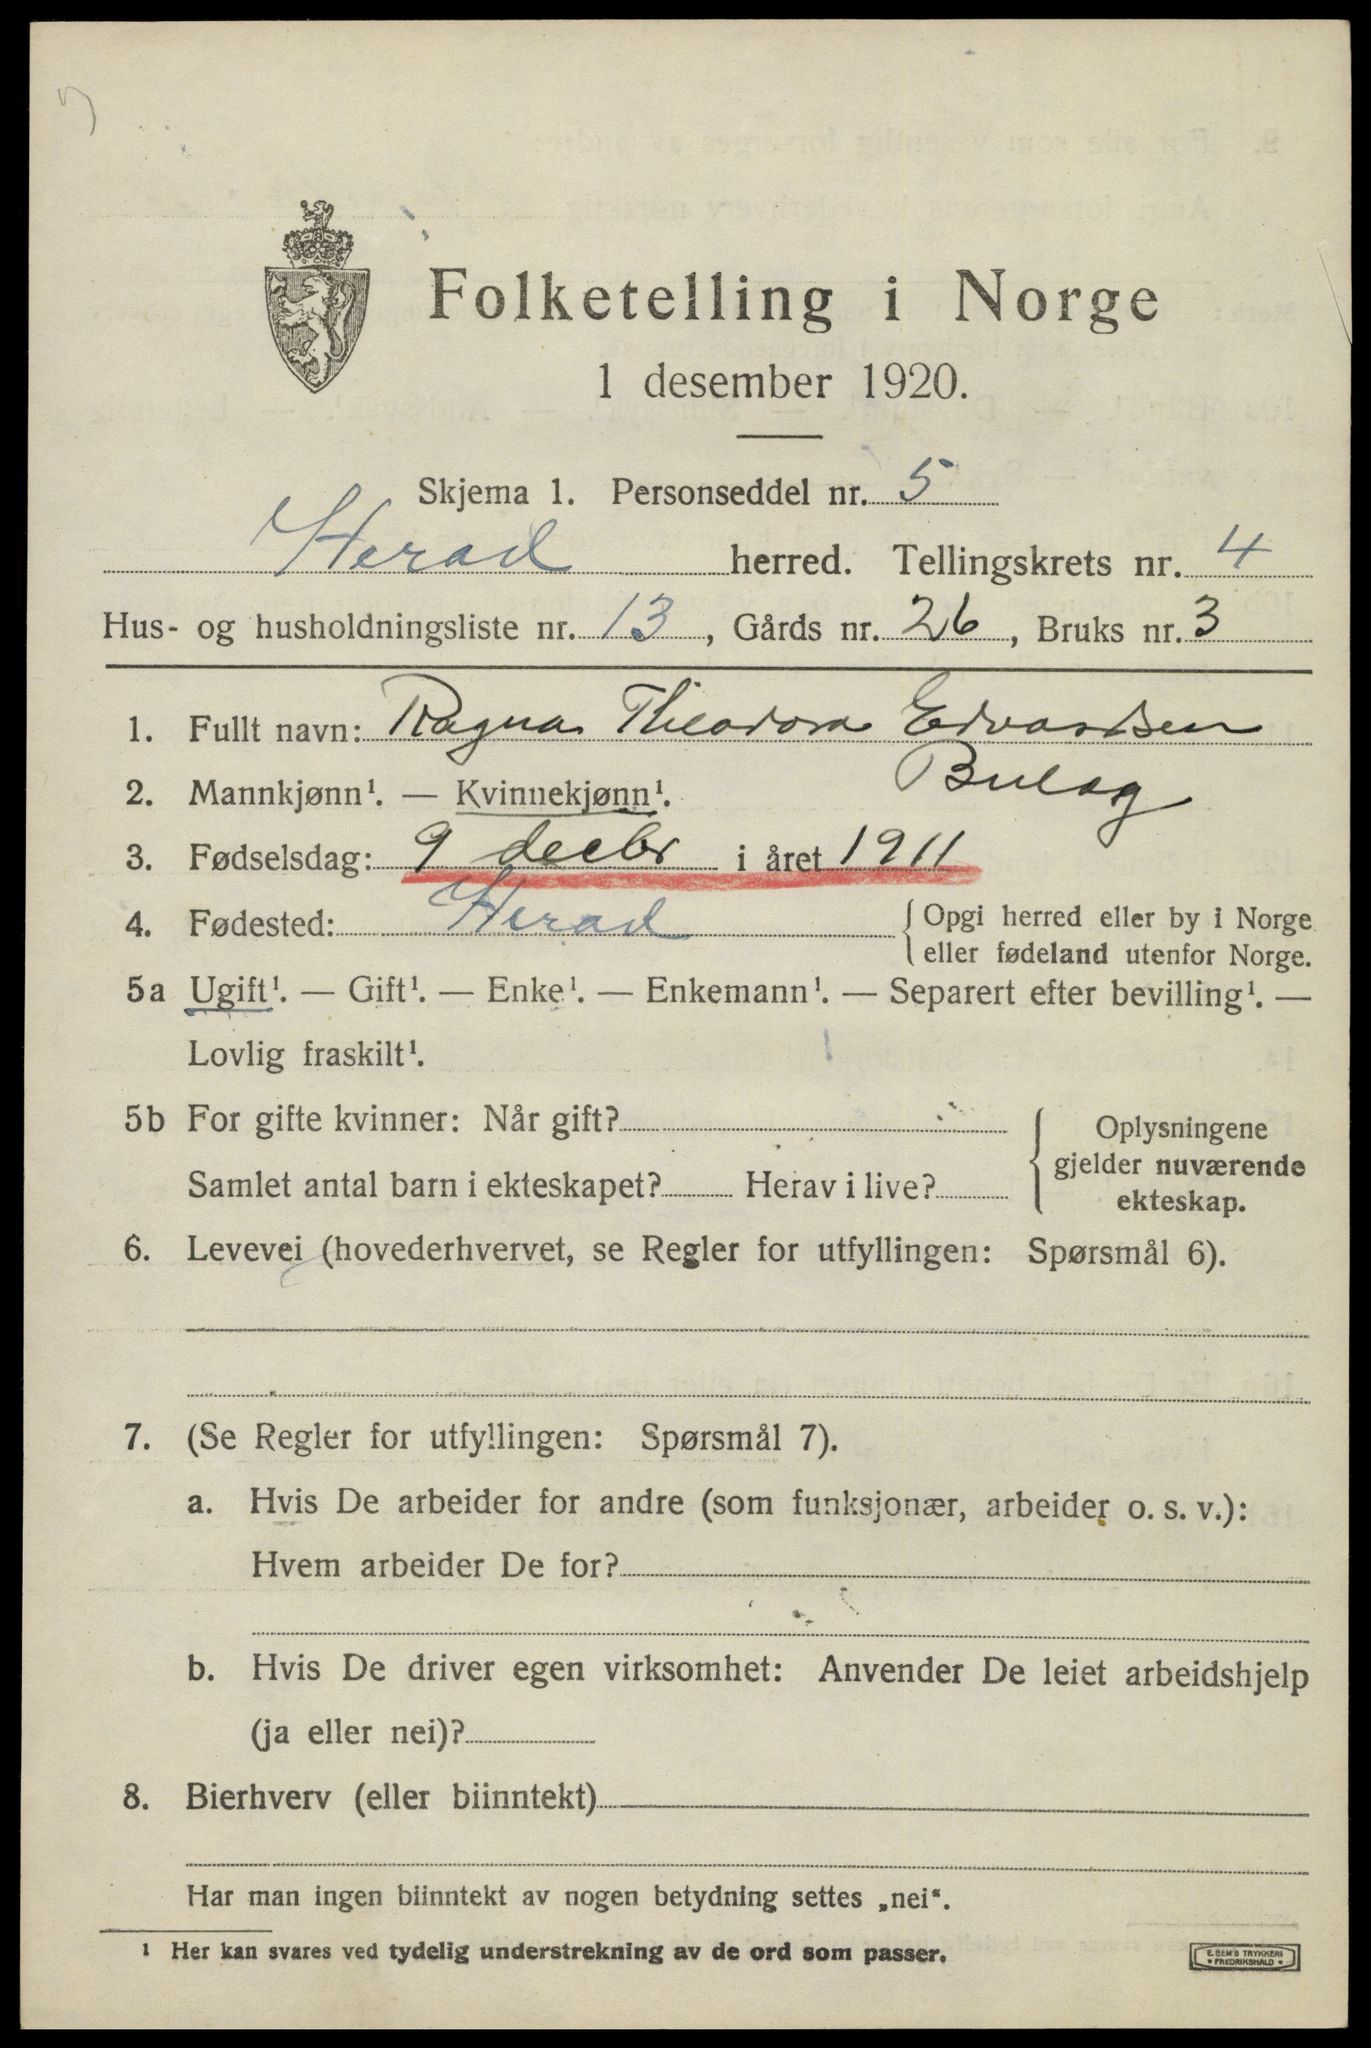 Folketelling i Norge
1 desember 1920.
Skjema 1. Personseddel nr. 5
Herad herred. Tellingskrets nr. 4
Hus- og husholdningsliste nr. 13, Gårds nr. 26, Bruks nr. 3
1. Fullt navn: Ragna Theodora Edvardsen
Buläg
2. Mannkjønn¹. — Kvinnekjønn¹.
3. Fødselsdag: 9 decbr i året 1911
4. Fødested: Herad { Opgi herred eller by i Norge
eller fødeland utenfor Norge.
5a Ugift¹. — Gift¹. — Enke¹. — Enkemann¹. — Separert efter bevilling¹. —
Lovlig fraskilt¹.
5b For gifte kvinner: Når gift? { Oplysningene
gjelder nuværende
ekteskap.
Samlet antal barn i ekteskapet? Herav i live?
6. Levevei (hovederhvervet, se Regler for utfyllingen: Spørsmål 6).
7. (Se Regler for utfyllingen: Spørsmål 7).
a. Hvis De arbeider for andre (som funksjonær, arbeider o. s. v.):
Hvem arbeider De for?
b. Hvis De driver egen virksomhet: Anvender De leiet arbeidshjelp
(ja eller nei)?
8. Bierhverv (eller biinntekt)
Har man ingen biinntekt av nogen betydning settes „nei“.
¹ Her kan svares ved tydelig understrekning av de ord som passer.
E. SEM'S TRYKKERI
• FREDRIKSHALD •